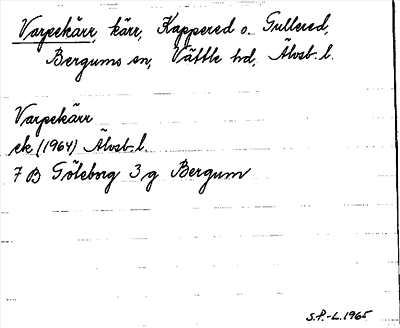 Varpekärr, kärr, Kappered o. Gullered,
Bergums sn, Vättle hd, Älvsb. l.
Varpekärr
ek (1964) Älvsb. l.
7 B Göteborg 3 g Bergum
S.P.-L. 1965